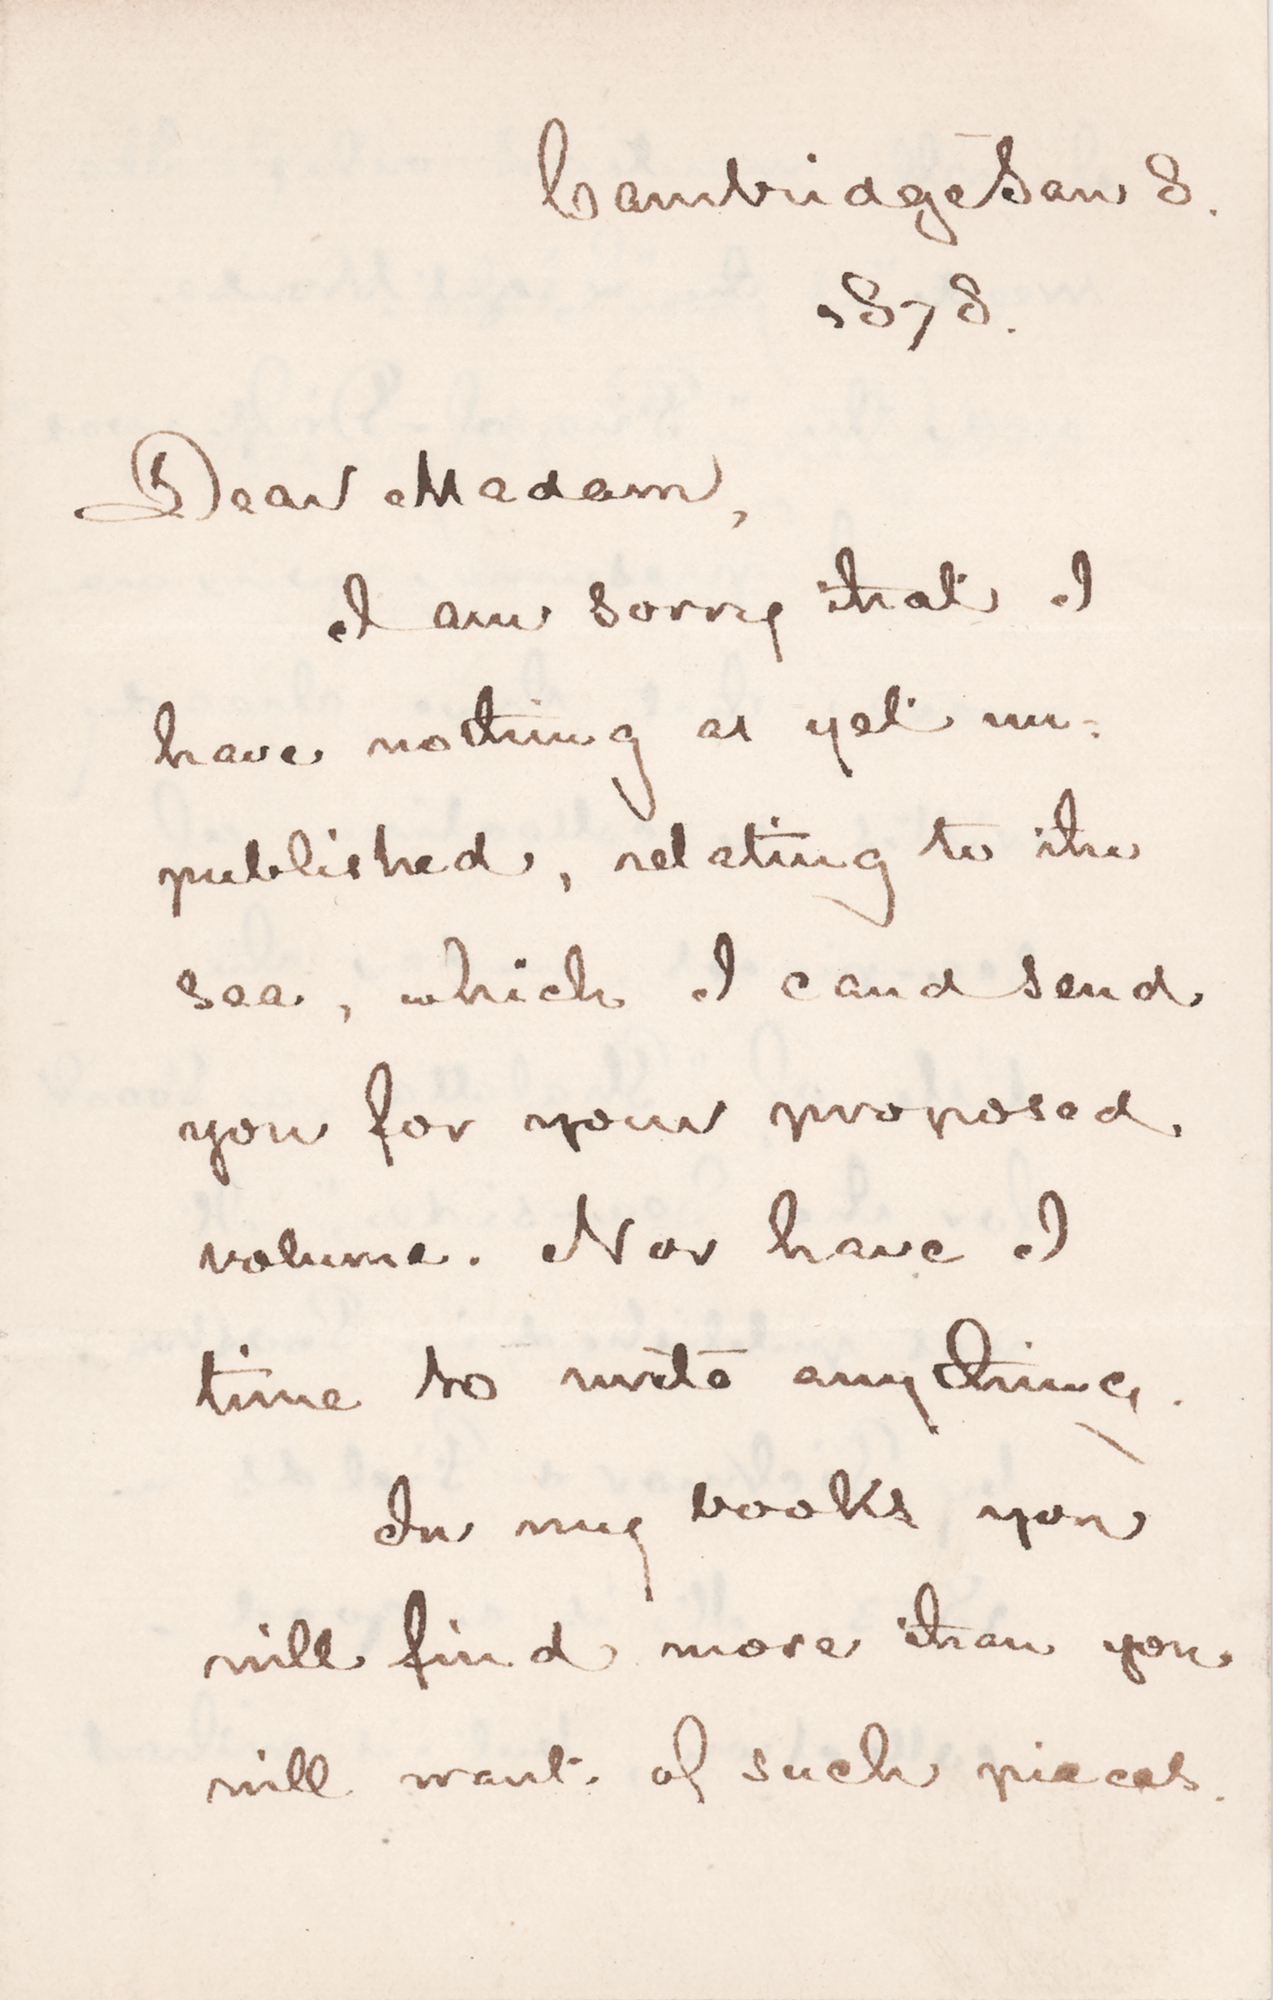 Cambridge Jan 8.
1878.
Dear Madam,
I am sorry that I
have nothing as yet un-
published, relating to the
sea, which I could send
you for your proposed
volume. Nor have I
time to write anything.
In my books you
will find more than you
will want of such pieces.